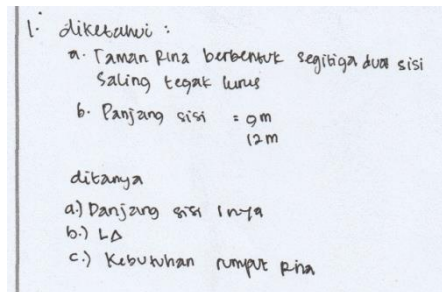 1. diketahui :
a. Taman Rina berbentuk segitiga dua sisi
saling tegak lurus
b. Panjang sisi = 9m
12m
ditanya
a.) Panjang sisi 1nya
b.) L∆
c.) Kebutuhan rumput Rina